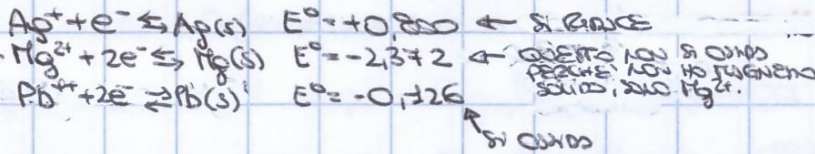 Ag⁺ + e⁻ ⇆ Ag(s) E⁰ = +0,800 ← SI RIDUCE
Mg²⁺ + 2e⁻ ⇆ Mg(s) E⁰ = -2,372 ← QUESTO NON SI OSSIDA
PERCHÉ NON HO MAGNESIO
SOLIDO, SOLO Mg²⁺.
Pb⁺⁺ + 2e⁻ ⇄ Pb(s) E⁰ = -0,126
SI OSSIDA